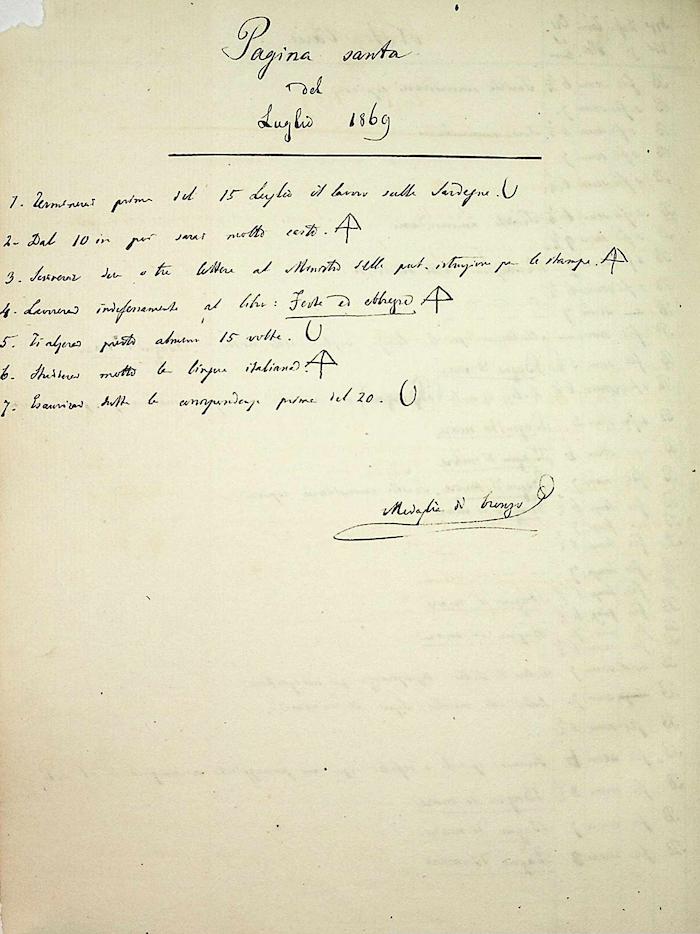 Pagina santa
del
Luglio 1869
1. Terminerai prima del 15 Luglio il lavoro sulla Sardegna.
2. Dal 10 in poi sarai molto casto.
3. Scriverai due o tre lettere al Ministro della pub. istruzione per le stampe.
4. Lavorerai indefessamente al libro: Feste ed ebbrezze
5. Ti alzerai presto almeno 15 volte.
6. Studierai molto la lingua italiana.
7. Esaurirai tutta la corrispondenza prima del 20.
Medaglia di bronzo